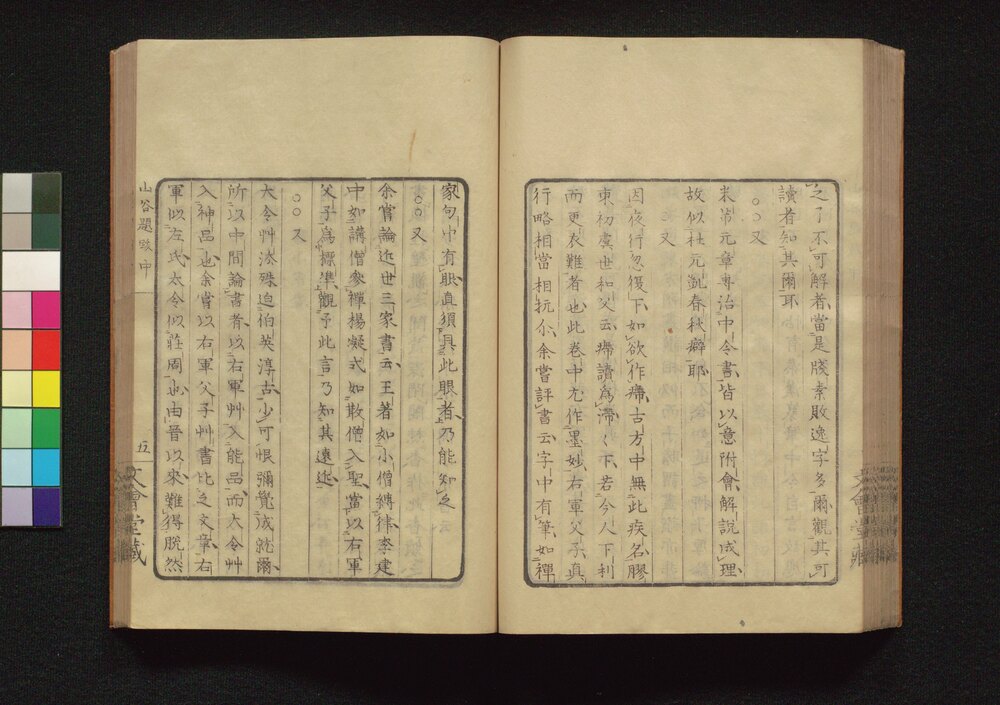 之了不可解者當是牋素敗逸字多爾觀其可
讀者知其爾耳
○○又
米芾元章專治中令書皆以意附會解說成理
故似杜元凱春秋癖耶
○○又
因夜行忽復下如欲作㿃古方中無此疾名膠
東初虞世和父云㿃讀為滯滯下若今人下利
而更衣難者也此卷中尤作墨妙右軍父子真
行略相當相抗尒余嘗評書云字中有筆如禪
家句中有眼直須具此眼者乃能知之
○○又
余嘗論近世三家書云王著如小僧縛律李建
中如講僧參禪楊凝式如散僧入聖當以右軍
父子為標準觀予此言乃知其遠近
○○又
大令艸法殊迫伯英淳古少可恨彌覺成就爾
所以中間論書者以右軍艸入能品而大令艸
入神品也余嘗以右軍父子艸書比之文章右
軍似左氏大令似莊周也由晉以來難得脫然
山谷題跋中
五
文會堂藏
文會堂藏